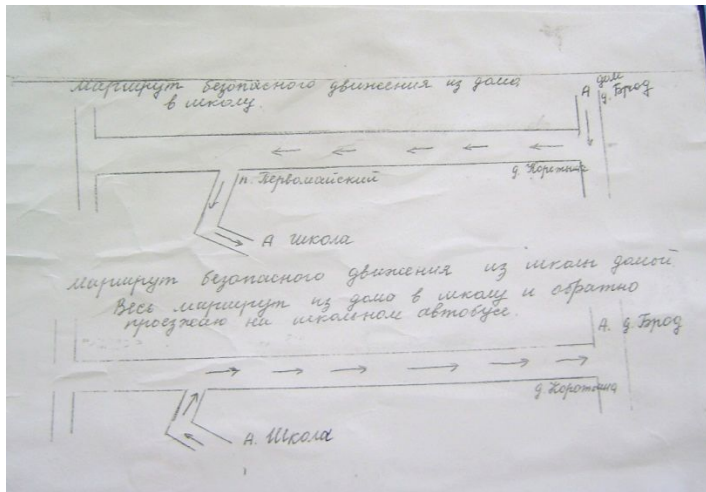 Маршрут безопасного движения из дома
в школу.
А дом
д. Брод
п. Первомайский
А школа
Маршрут безопасного движения из школы домой
Весь маршрут из дома в школу и обратно
проезжаю на школьном автобусе.
А. д. Брод
д.
А. Школа